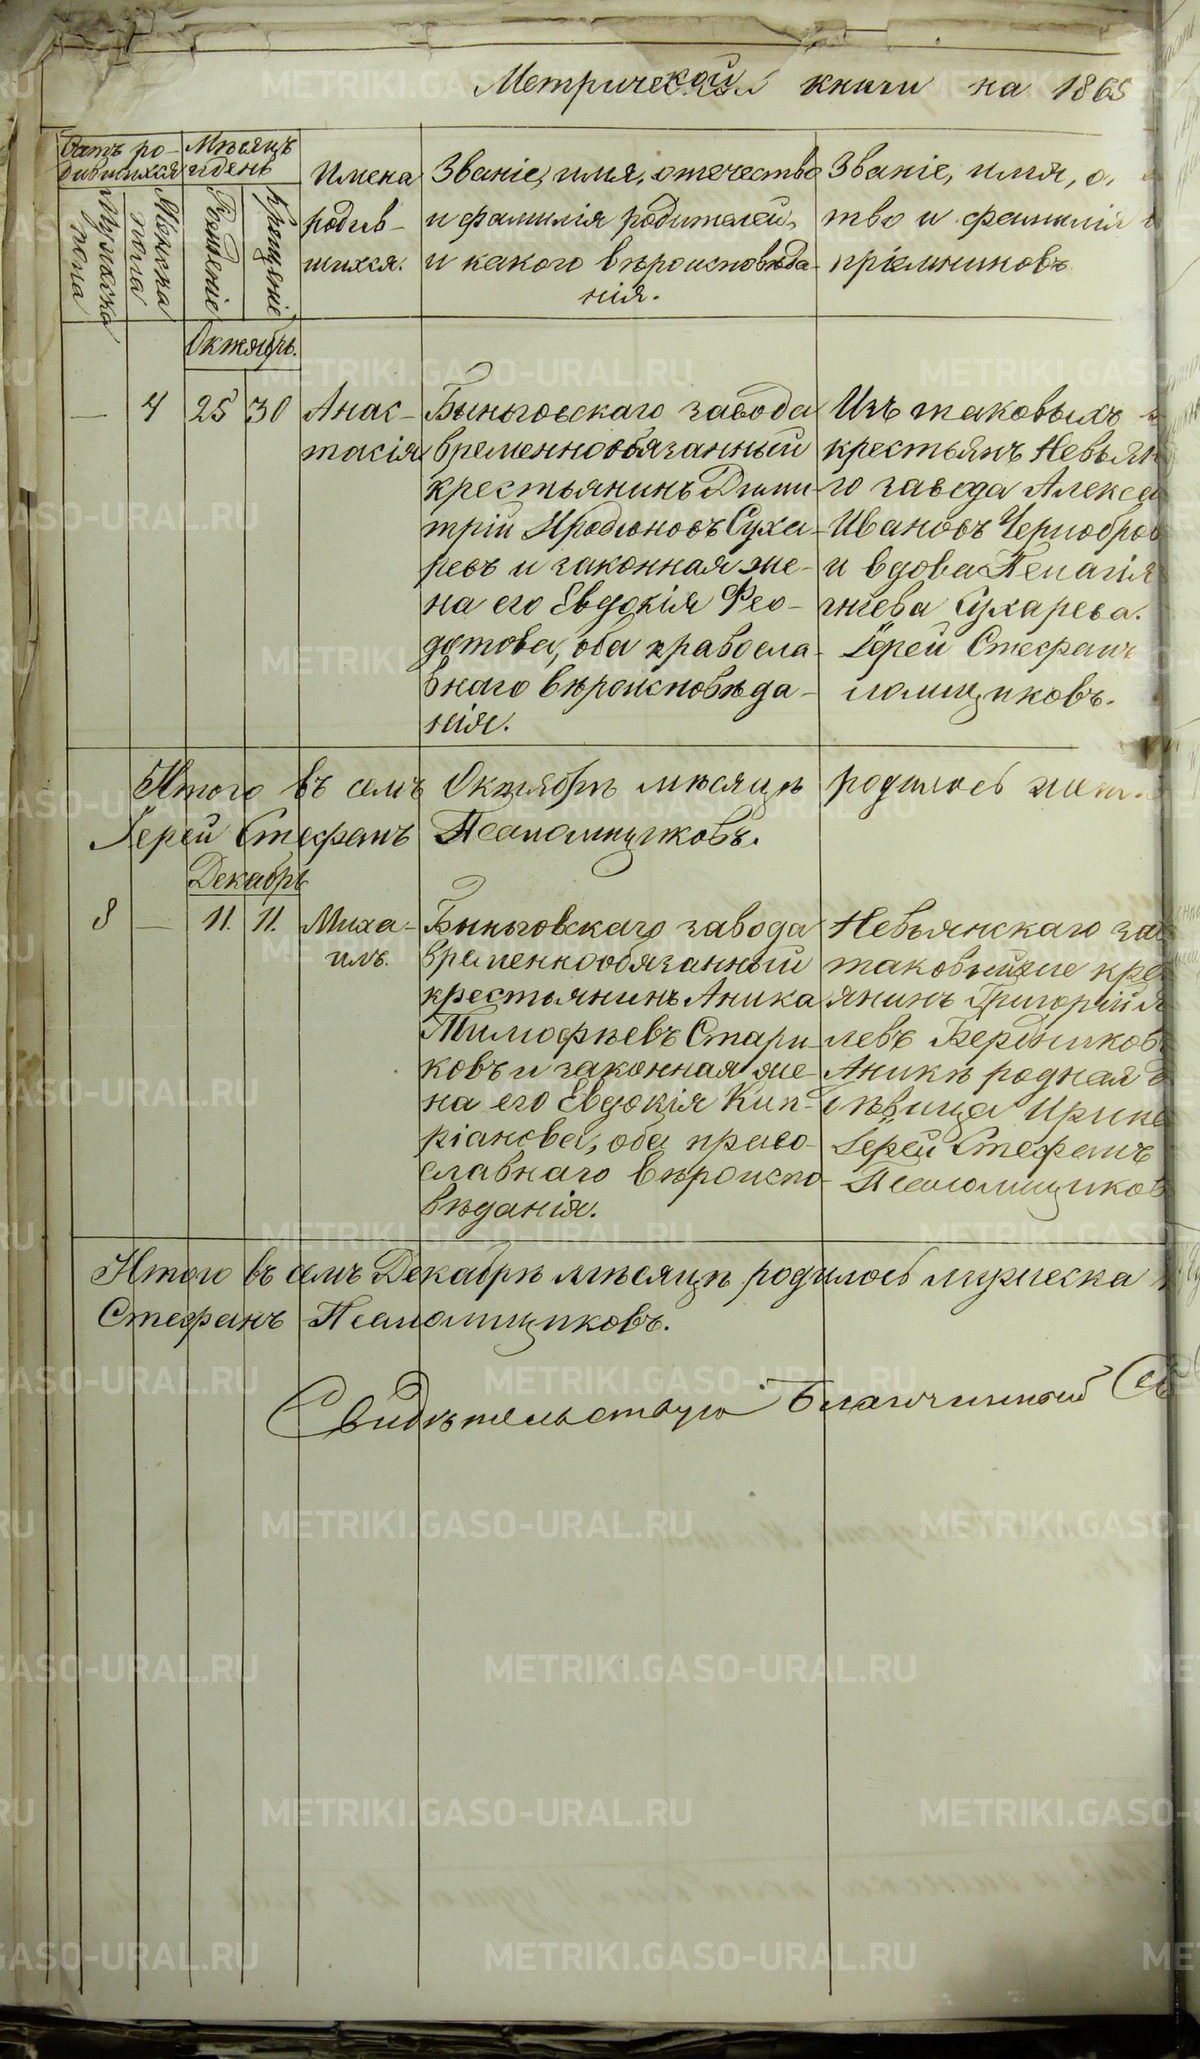 Метрической книги на 1865
Счетъ ро-
дившихся
Мѣсяцъ
и день
Мужеска
пола
Женска
пола
Рожденіе
Крещеніе
Имена
родив-
шихся.
Званіе, имя, отечество
и фамилія родителей,
и какого вѣроисповѣда-
нія.
Званіе, имя, о
тво и фамилія
пріемниковъ
Октябрь.
— 4 25 30
Анас-
тасія
Быньговскаго завода
временнообязанный
крестьянинъ Дими-
трій Иродіоновъ Суха-
ревъ и законная же-
на его Евдокія Фео-
дотова, оба правосла-
внаго вѣроисповѣда-
нія.
Изъ таковыхъ
крестьянъ Невьян
го завода Алекса
Ивановъ Чернобров
и вдова Пелагія
Сухарева.
Іерей Стефанъ
ломщиковъ.
Итого въ семъ Октябрѣ мѣсяцѣ родилось жен
Іерей Стефанъ Псаломщиковъ.
Декабрь
8 — 11. 11.
Миха-
илъ.
Быньговскаго завода
временнообязанный
крестьянинъ Аника
Тимофѣевъ Стари-
ковъ и законная же-
на его Евдокія Кип-
ріанова, оба право-
славнаго вѣроиспо-
вѣданія.
Невьянскаго зав
таковыйже кре
янинъ Григорій Я
левъ Бердников
Аникѣ родная д
дѣвица Ирина
Іерей Стефанъ
Псаломщиков
Итого въ семъ Декабрѣ мѣсяцѣ родилось мужеска
Стефанъ Псаломщиковъ.
Свидѣтельствую Благочинный
METRIKI.GASO-URAL.RU